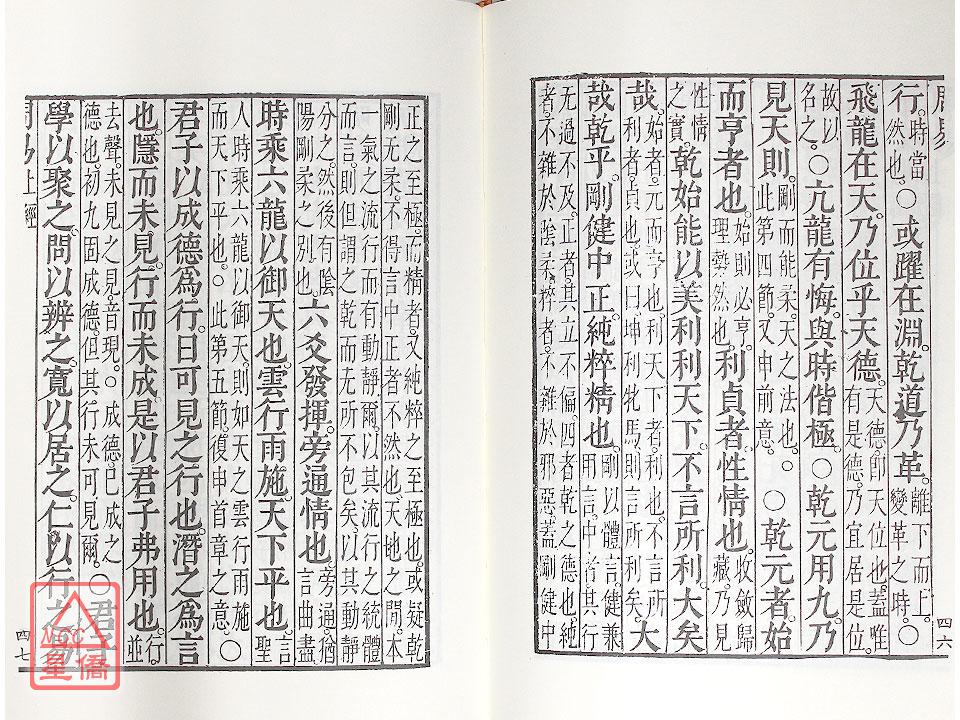 周易
四六
行。時當然也。○或躍在淵。乾道乃革。離下而上。變革之時。○
飛龍在天。乃位乎天德。天德。卽天位也。蓋唯有是德。乃宜居是位。
故以名之。○亢龍有悔。與時偕極。○乾元用九。乃
見天則。剛而能柔。天之法也。○此第四節。又申前意。○乾元者。始
而亨者也。始則必亨。理勢然也。利貞者。性情也。收斂歸藏。乃見
性情之實。乾始能以美利利天下。不言所利。大矣
哉。始者。元而亨也。利天下者。利也。不言所利者。貞也。或曰坤利牝馬。則言所利矣。大
哉乾乎。剛健中正。純粹精也。剛以體言。健兼用言。中者其行
无過不及。正者。其立不偏。四者乾之德也。純者。不雜於陰柔。粹者。不雜於邪惡。蓋剛健中
正之至極。而精者。又純粹之至極也。或疑乾剛无柔。不得言中正者。不然也。天地之閒。本
一氣之流行。而有動靜爾。以其流行之統體而言。則但謂之乾而无所不包矣。以其動靜
分之。然後有陰陽剛柔之別也。六爻發揮。旁通情也。旁通。猶言曲盡
時乘六龍。以御天也。雲行雨施。天下平也。言聖
人時乘六龍以御天。則如天之雲行雨施而天下平也。○此第五節。復申首章之意。○
君子以成德爲行。日可見之行也。潛之爲言
也。隱而未見。行而未成。是以君子弗用也。行。並
去聲。未見之見。音現。○成德。已成之德也。初九固成德。但其行未可見爾。○君子
學以聚之。問以辨之。寬以居之。仁以行之
周易上經
四七
NCC
星僑